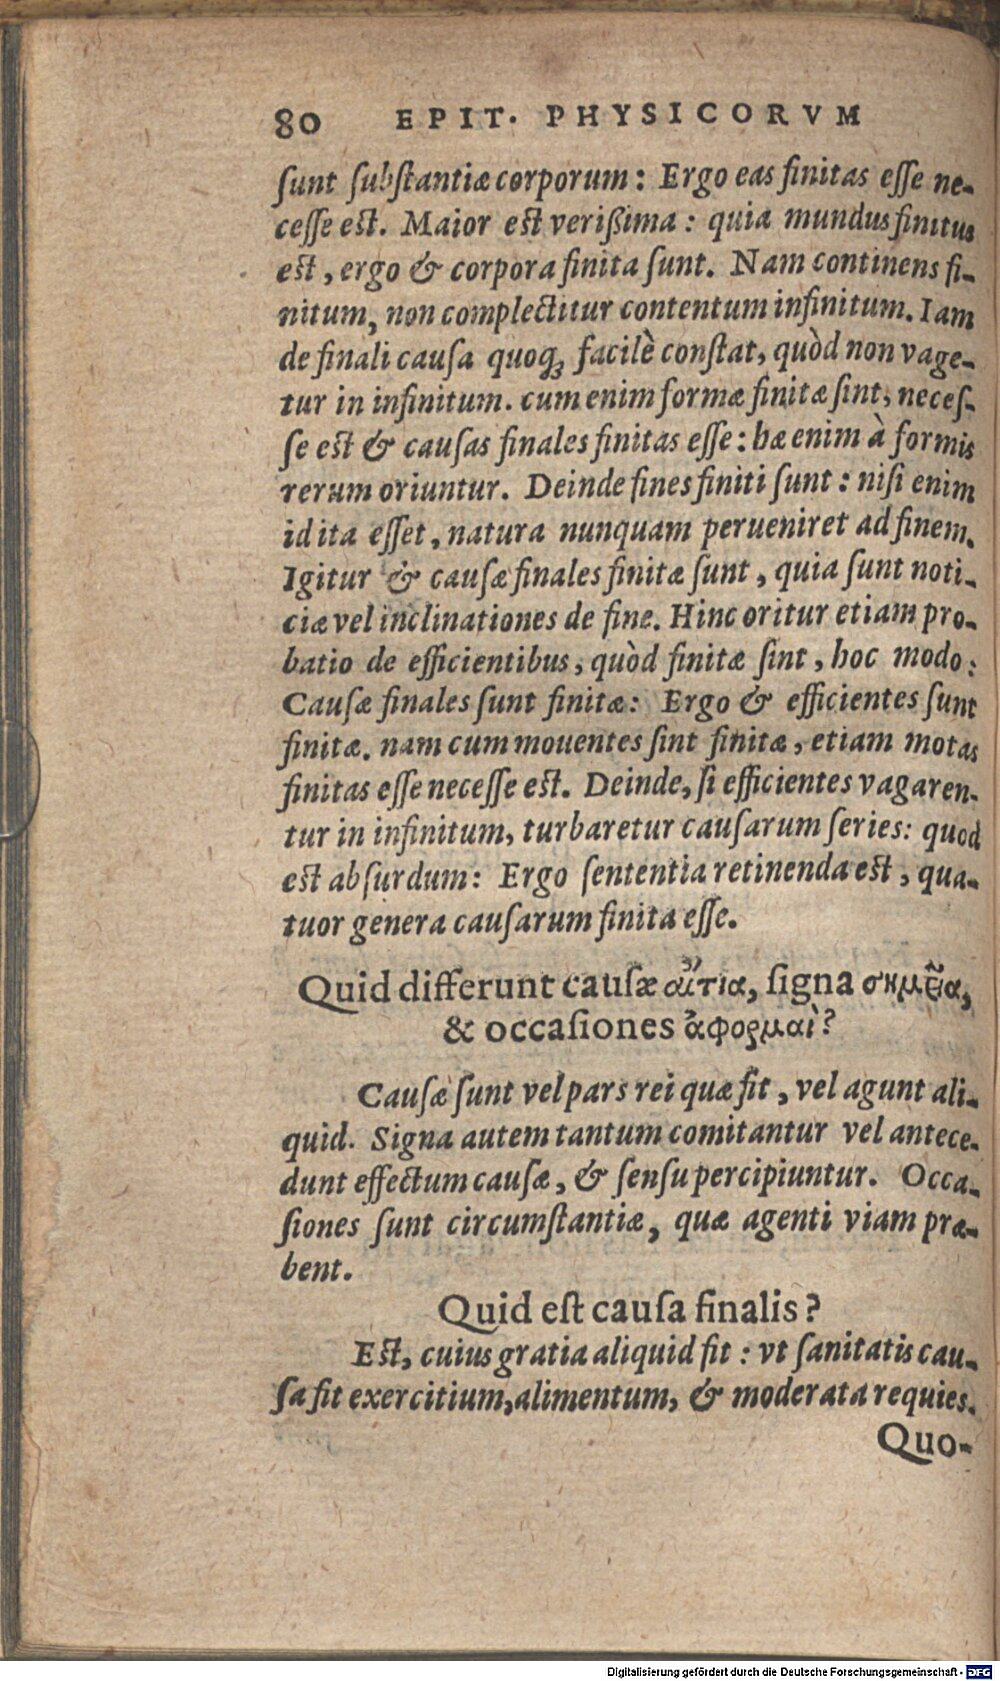 80 EPIT. PHYSICORVM
sunt substantiæ corporum: Ergo eas finitas esse ne-
cesse est. Maior est verißima: quia mundus finitus
est, ergo & corpora finita sunt. Nam continens fi-
nitum, non complectitur contentum infinitum. Iam
de finali causa quoq; facilè constat, quòd non vage-
tur in infinitum. cum enim formæ finitæ sint, neces-
se est & causas finales finitas esse: hæ enim à formis
rerum oriuntur. Deinde fines finiti sunt: nisi enim
id ita esset, natura nunquam perueniret ad finem.
Igitur & causæ finales finitæ sunt, quia sunt noti-
ciæ vel inclinationes de fine. Hinc oritur etiam pro-
batio de efficientibus, quòd finitæ sint, hoc modo:
Causæ finales sunt finitæ: Ergo & efficientes sunt
finitæ. nam cum mouentes sint finitæ, etiam motas
finitas esse necesse est. Deinde, si efficientes vagaren-
tur in infinitum, turbaretur causarum series: quod
est absurdum: Ergo sententia retinenda est, qua-
tuor genera causarum finita esse.
Quid differunt causæ αἴτια, signa σημεῖα,
& occasiones ἀφορμαὶ?
Causæ sunt vel pars rei quæ fit, vel agunt ali-
quid. Signa autem tantum comitantur vel antece-
dunt effectum causæ, & sensu percipiuntur. Occa-
siones sunt circumstantiæ, quæ agenti viam præ-
bent.
Quid est causa finalis?
Est, cuius gratia aliquid fit: vt sanitatis cau-
sa fit exercitium, alimentum, & moderata requies.
Quo-
Digitalisierung gefördert durch die Deutsche Forschungsgemeinschaft - DFG